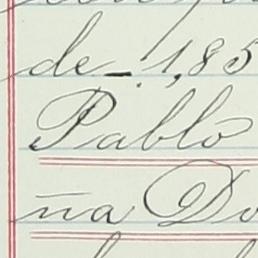 de 1,85
Pablo
ña Do